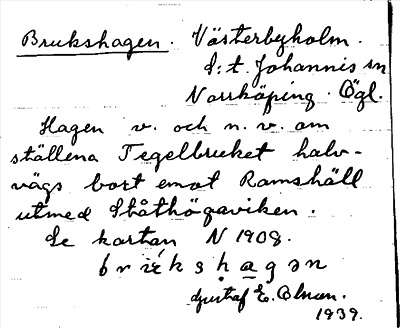 Brukshagen. Västerbyholm.
S:t Johannis sn
Norrköping. Ögl.
Hagen v. och n. v. om
ställena Tegelbruket halv-
vägs bort emot Ramshäll
utmed Ståthögaviken.
Se kartan N 1908.
Gustaf E. Olman.
1939.